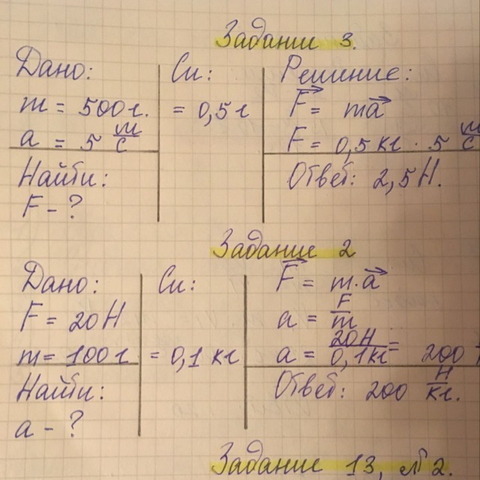 Задание 3.
Дано:
m = 500 г.
a = 5 м/с
Найти:
F - ?
Си:
= 0,5 г
Решиние:
F = ma
F = 0,5 кг · 5 м/с
Ответ: 2,5 Н.
Задание 2
Дано:
F = 20 Н
m = 100 г
Найти:
a - ?
Си:
= 0,1 кг
F = m·a
a = F/m
a = 20Н/0,1кг = 200
Ответ: 200 Н/кг.
Задание 13, №2.